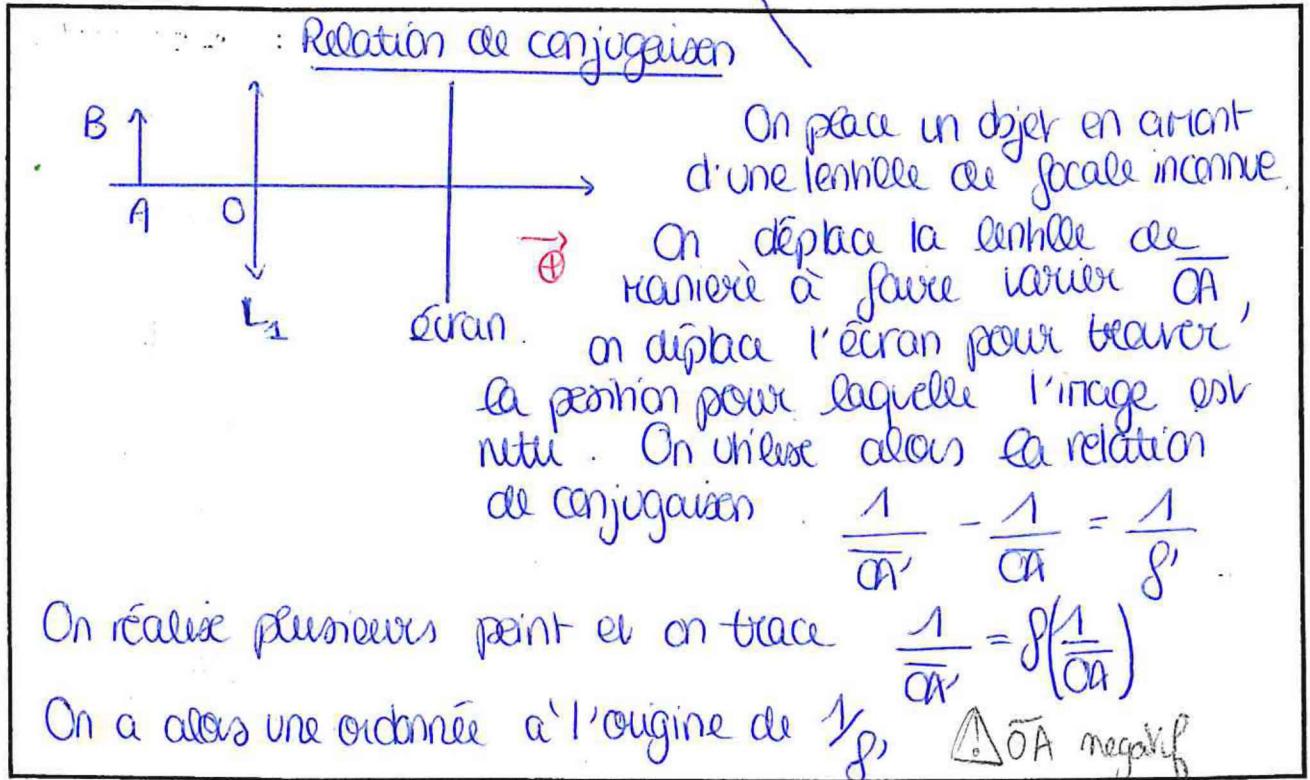 : Relation de conjugaison
B
A
O
L₁
écran.
⊕
On place un objet en amont
d'une lentille de focale inconnue.
On déplace la lentille de
manière à faire varier OA,
on déplace l'écran pour trouver
la position pour laquelle l'image est
nette. On utilise alors la relation
de conjugaison. 1/OA' - 1/OA = 1/f'.
On réalise plusieurs point et on trace 1/OA' = f(1/OA)
On a alors une ordonnée à l'origine de 1/f' ⚠ OA negatif